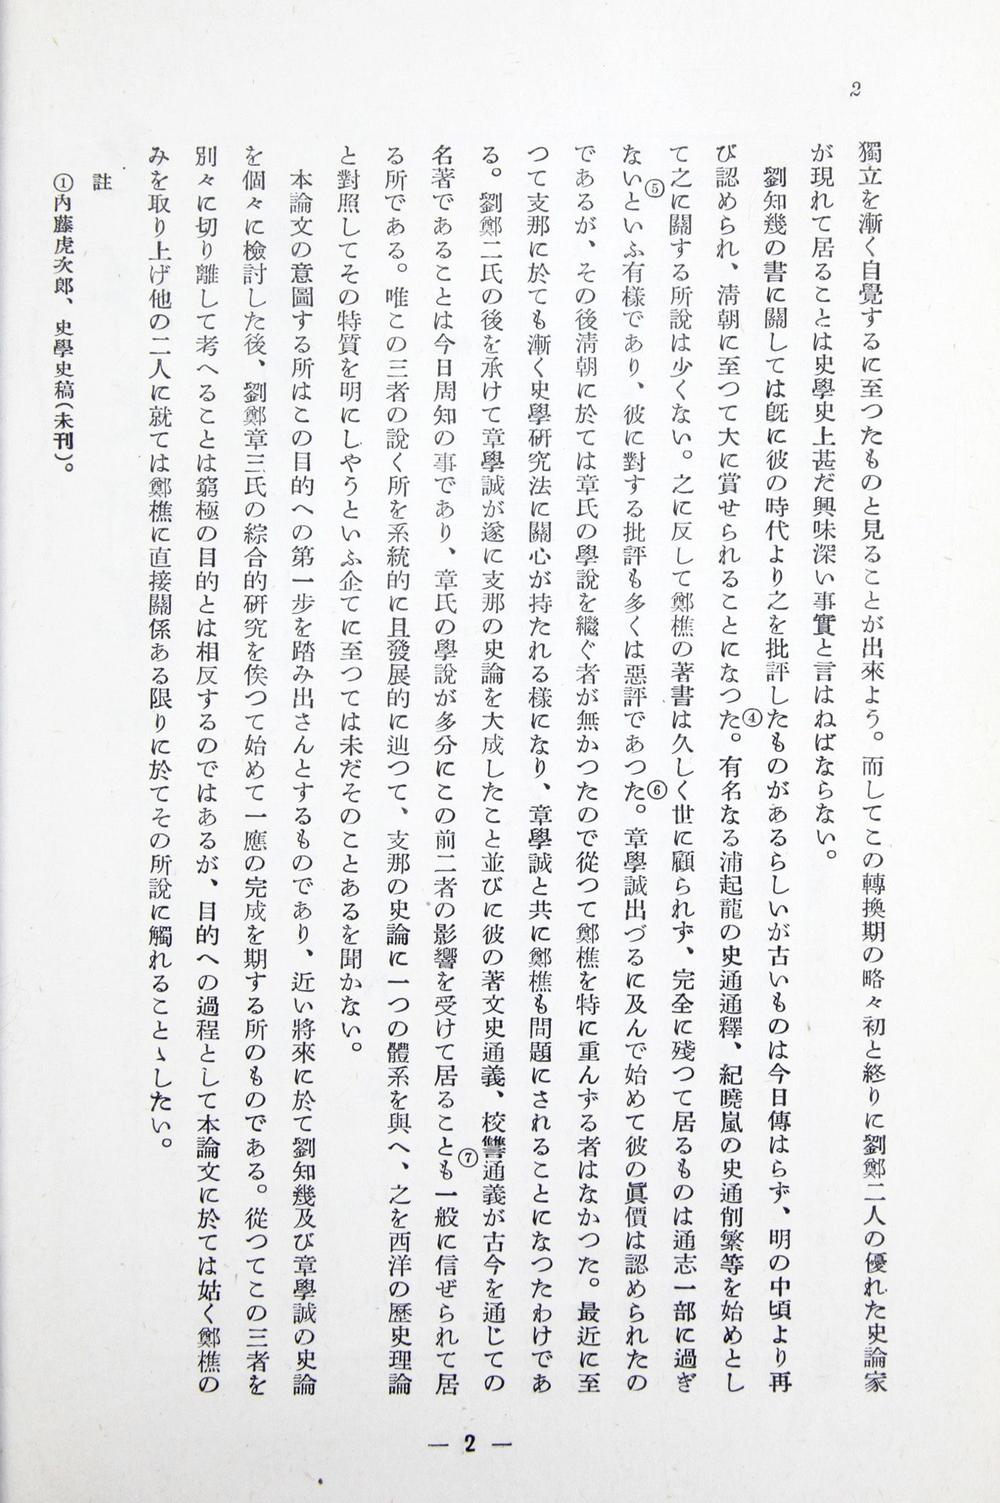 2
獨立を漸く自覺するに至つたものと見ることが出來よう。而してこの轉換期の略々初と終りに劉鄭二人の優れた史論家
が現れて居ることは史學史上甚だ興味深い事實と言はねばならない。
劉知幾の書に關しては既に彼の時代より之を批評したものがあるらしいが古いものは今日傳はらず、明の中頃より再
び認められ、淸朝に至つて大に賞せられることになつた。④有名なる浦起龍の史通通釋、紀曉嵐の史通削繁等を始めとし
て之に關する所說は少くない。⑤之に反して鄭樵の著書は久しく世に顧られず、完全に殘つて居るものは通志一部に過ぎ
ないといふ有樣であり、彼に對する批評も多くは惡評であつた。⑥章學誠出づるに及んで始めて彼の眞價は認められたの
であるが、その後淸朝に於ては章氏の學說を繼ぐ者が無かつたので從つて鄭樵を特に重んずる者はなかつた。最近に至
つて支那に於ても漸く史學硏究法に關心が持たれる樣になり、章學誠と共に鄭樵も問題にされることになつたわけであ
る。劉鄭二氏の後を承けて章學誠が遂に支那の史論を大成したこと並びに彼の著文史通義、校讐通義が古今を通じての
名著であることは今日周知の事であり、章氏の學說が多分にこの前二者の影響を受けて居ることも⑦一般に信ぜられて居
る所である。唯この三者の說く所を系統的に且發展的に辿つて、支那の史論に一つの體系を與へ、之を西洋の歷史理論
と對照してその特質を明にしやうといふ企てに至つては未だそのことあるを聞かない。
本論文の意圖する所はこの目的への第一步を踏み出さんとするものであり、近い將來に於て劉知幾及び章學誠の史論
を個々に檢討した後、劉鄭章三氏の綜合的硏究を俟つて始めて一應の完成を期する所のものである。從つてこの三者を
別々に切り離して考へることは窮極の目的とは相反するのではあるが、目的への過程として本論文に於ては姑く鄭樵の
みを取り上げ他の二人に就ては鄭樵に直接關係ある限りに於てその所說に觸れることゝしたい。
註
①內藤虎次郎、史學史稿(未刊)。
— 2 —